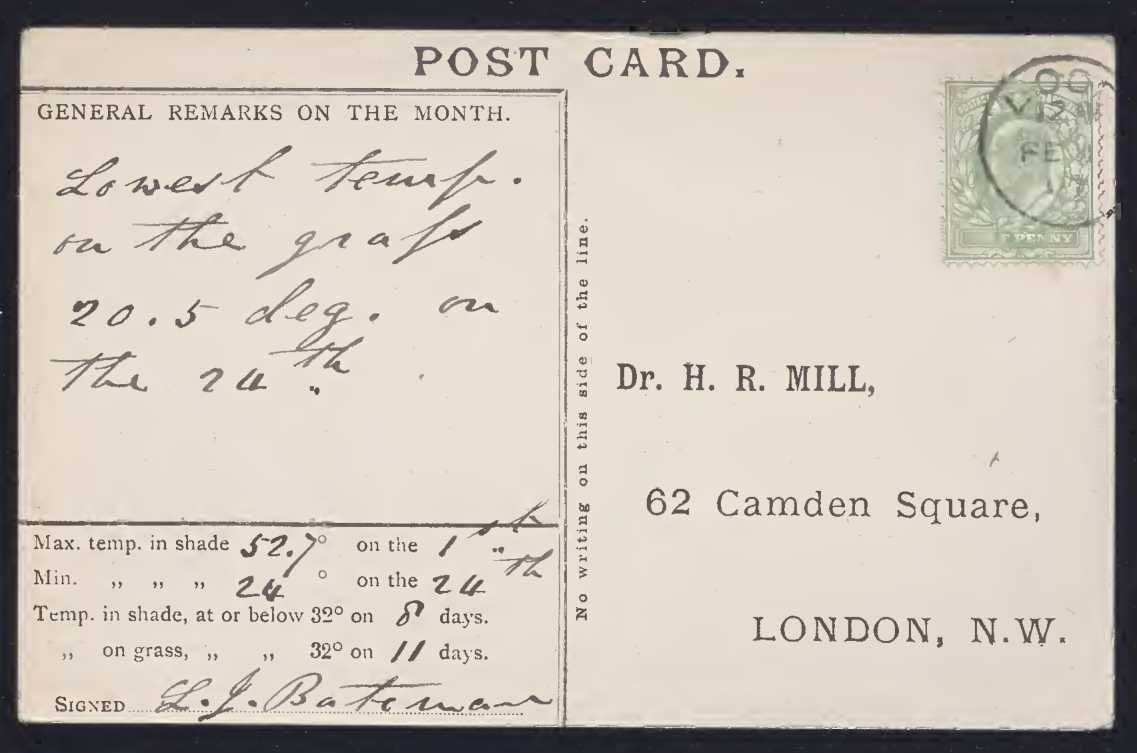 POST CARD.
GENERAL REMARKS ON THE MONTH.
Lowest temp.
on the grass
20.5 deg. on
the 24th
Max. temp. in shade 52.7° on the 1st
Min. „ „ „ 24° on the 24th
Temp. in shade, at or below 32° on 8 days.
„ on grass, „ „ 32° on 11 days.
SIGNED L. J. Bateman
No writing on this side of the line.
PENNY
FE
Dr. H. R. MILL,
62 Camden Square,
LONDON, N.W.